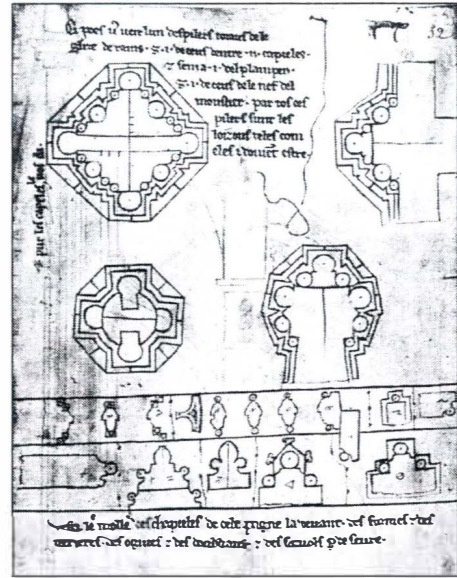 Ci poes vꝰ veir lun des pilers toraus de le
glize de rains · ⁊ · i · de ceus dentre · ii · capieles ·
⁊ sen i a · i · del plain pen ·
⁊ · i · de ceus de le nef del
moustier · par tos ces
pilers sunt les
loizons teles com
eles i doivent estre ·
32
des chapieles de cele pagne la devant · des formes ⁊ des
verieres · des ogives ⁊ des doubliaus · ⁊ des sorvols p deseure ·